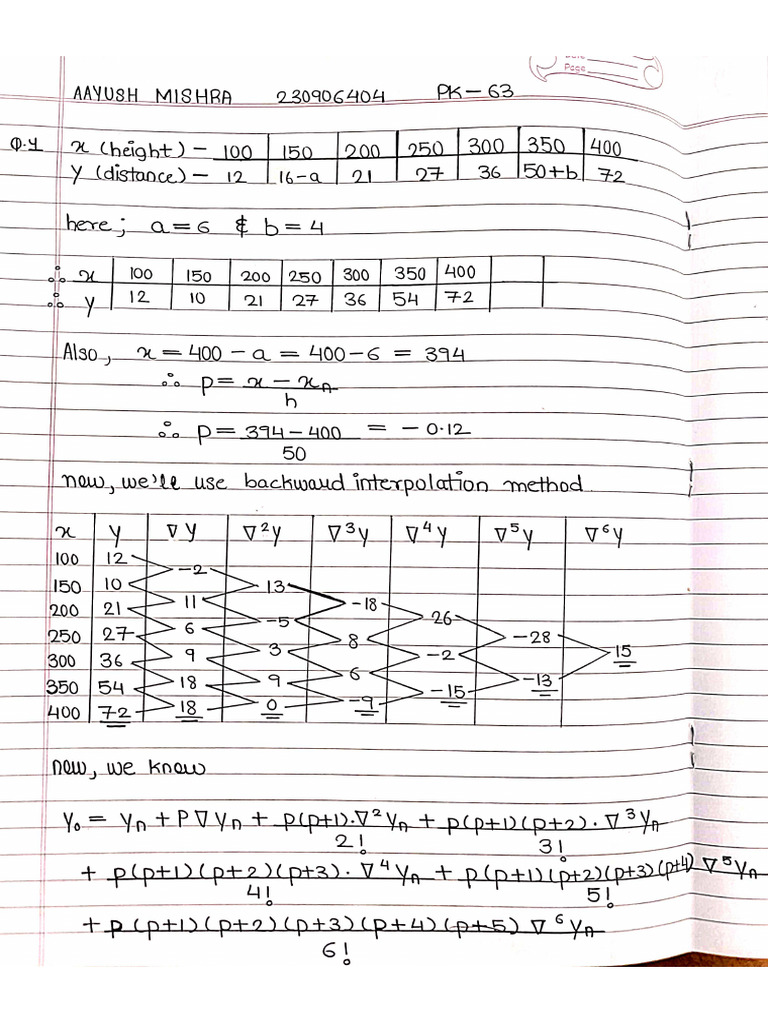 Date
Page
AAYUSH MISHRA 230906404 PK-63
Q.1 x (height) - 100 150 200 250 300 350 400
Y (distance) - 12 16-a 21 27 36 50+b 72
here; a = 6 & b = 4
∴ x 100 150 200 250 300 350 400
∴ y 12 10 21 27 36 54 72
Also, x = 400 - a = 400 - 6 = 394
∴ p = x - xₙ
h
∴ p = 394 - 400 = - 0.12
50
now, we'll use backward interpolation method
x y ∇y ∇²y ∇³y ∇⁴y ∇⁵y ∇⁶y
100 12
-2
150 10 13
11 -18
200 21 -5 26
6 8 -28
250 27 3 -2 15
9 6 -13
300 36 9 -15
18 -9
350 54 0
18
400 72
now, we know
y₀ = yₙ + P∇yₙ + p(p+1).∇²yₙ + p(p+1)(p+2).∇³yₙ
2! 3!
+ p(p+1)(p+2)(p+3).∇⁴yₙ + p(p+1)(p+2)(p+3)(p+4)∇⁵yₙ
4! 5!
+ p(p+1)(p+2)(p+3)(p+4)(p+5)∇⁶yₙ
6!